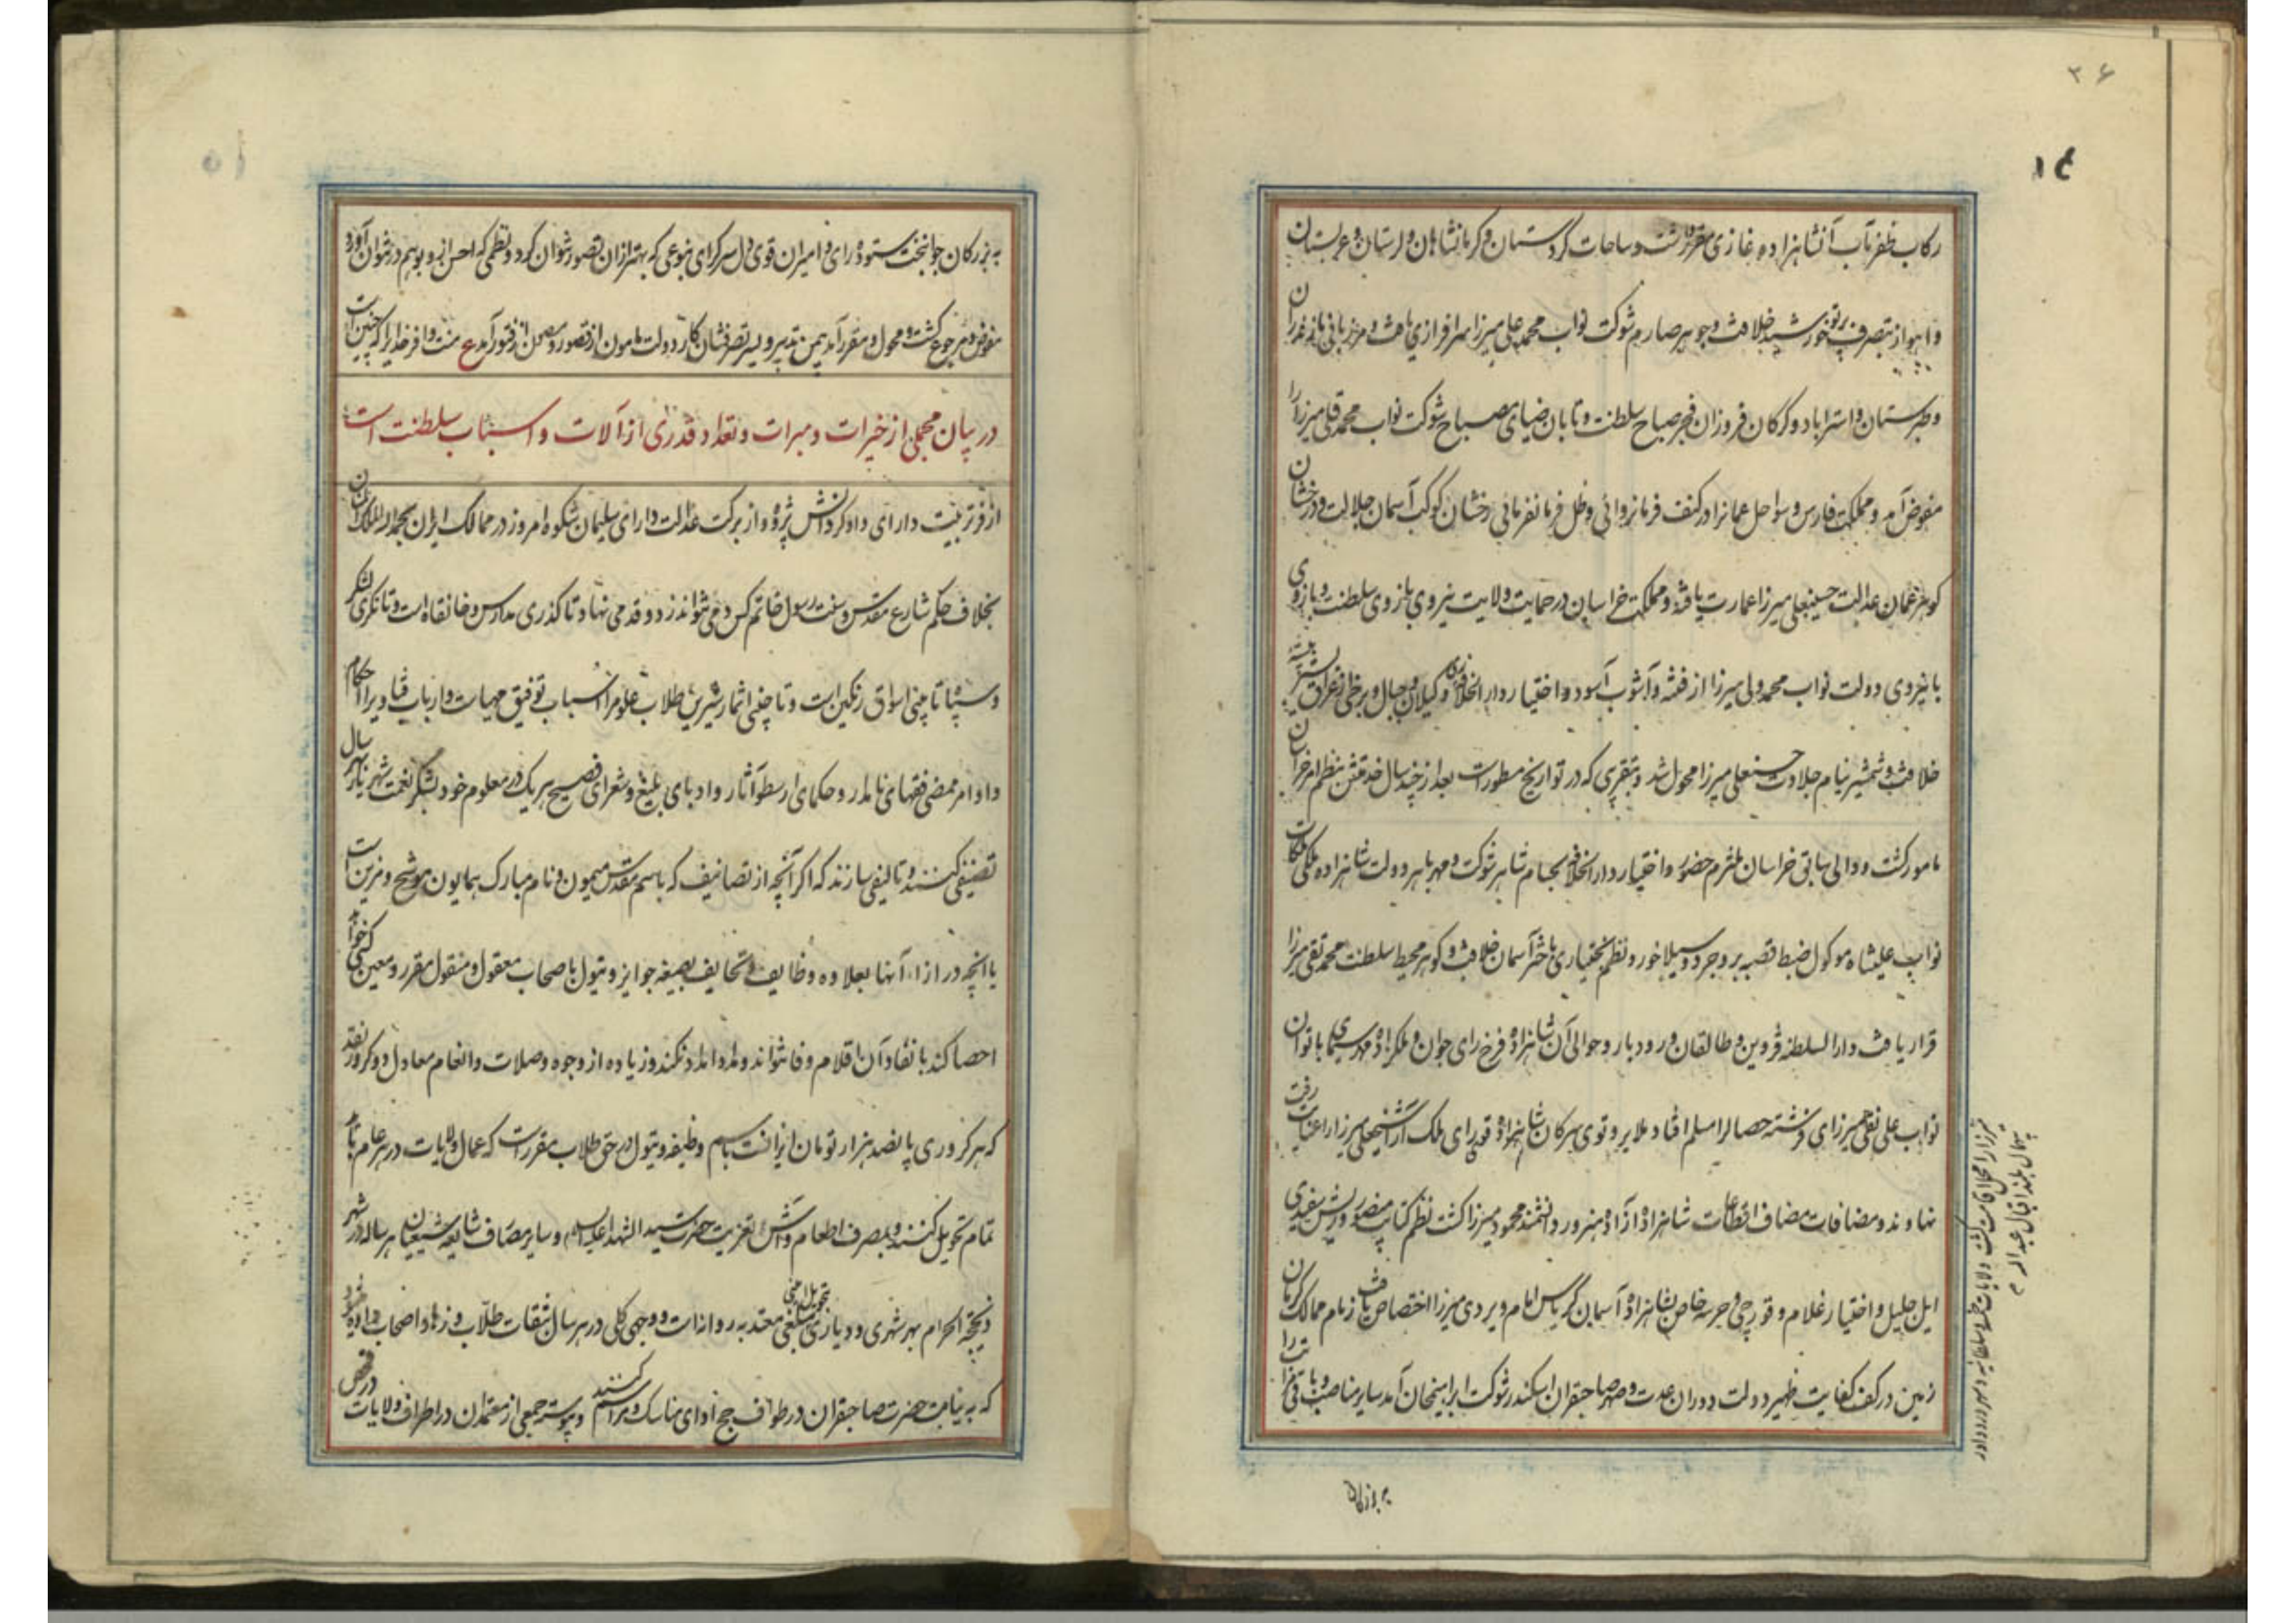 ۳۶
رکاب ظفر مآب آنشاهزاده غازی مقرر گشت و ساحات کردستان و کرمانشاهان و لرستان و عربستان
و اهواز بتصرف پرتو خورشید خلافت و جوهر صارم شوکت نواب محمد علی میرزا سرافرازی یافت و مرزبانی مازندران
و طبرستان و استراباد و گرگان فروزان فجر صباح سلطنت و تابان ضیای مصباح شوکت نواب محمد قلی میرزا را
مفوض آمد و مملکت فارس و سواحل عمانرا در کنف فرمانروائی و ظل فرمانفرمائی رخشان کوکب آسمان جلالت و درخشان
گوهر عمان عدالت حسینعلی میرزا عمارت یافت و مملکت خراسان در حمایت ولایت نیروی بازوی سلطنت و بازوی
با نیروی دولت نواب محمد ولی میرزا از فتنه و آشوب آسود و اختیار دار الخلافه و گیلان و جبال و برخی از عراق
خلافت و شمشیر نیام جلادت حسنعلی میرزا محول شد و بتقریبی که در تواریخ مسطور است بعد از چند سال خدمتش بنظم امر خراسان
مامور گشت و والی سابق خراسان ملتزم حضور و اختیار دار الخلافه بحسام شاهر شوکت و مهر باهر دولت شاهزاده ملکی ملکات
نواب علیشاه موکول ضبط قصبه بروجرد و سیلاخور و نظم بختیاری باختر آسمان خلافت و گوهر محیط سلطنت محمد تقی میرزا
قرار یافت دار السلطنه قزوین و طالقان و رودبار و حوالی آن شاهزاده فرخ رای جوان و ملکزاده مهر سیمای با توان
نواب علی نقی میرزای فرشته خصال را مسلم افتاد ملایر و توی سرکان شاهزاده قوی رای ملک آرا شیخعلی میرزا را عنایت رفت
نهاوند و مضافات مضاف اقطاعات شاهزاده آزاده هنرور دانشمند محمود میرزا گشت نظم کتایب منصور و ریش سفیدی
ایل جلیل و اختیار غلام و قورچی و حرسه خاص بشاهزاده آسمان کریاس امام ویردی میرزا اختصاص یافت زمام ممالک کرمان
زمین در کف کفایت ظهیر دولت دوران عدت و صهر صاحبقران اسکندر شوکت ابراهیمخان آمد سایر مناصب و باقی مراتب را
بزرگان
به بزرگان جوانبخت ستوده رای و امیران قوی دل سرکرای بنوعی که بهتر از آن تصور نتوان کرد و نظمی که احسن از او بوهم در نتوان آورد
مفوض و مرجوع گشت و محول و مقرر آمد بیمن تدبیر و یسر تصرفشان کار دولت مامون از قصور و مصون از فتور آمد ع منت وافر خدایرا که چنین است
در بیان مجملی از خیرات و مبرات و تعداد قدری از آلات و اسباب سلطنت است
از فر تربیت دارای داد کر دانش پژوه و از برکت عدالت دارای سلیمان شکوه امروز در ممالک ایران بحمد الله الملک المنان
بخلاف حکم شارع مقدس و سنت رسول خاتم کس دمی نتواند زد و قدمی نهاد تا گذری مدارس و خانقاه است و تا نگری لنگر
و سقا تا چنی اسواق رنگین است و تا چنی اثمار شیرین طلاب علوم را اسباب توفیق مهیاست و ارباب فتاوی را احکام
و اوامر ممضی فقهای نامدار و حکمای ارسطو آثار و ادبای بلیغ و شعرای فصیح هر یک در معلوم خود بشکر نعمت شهریار هر سال
تصنیفی کنند و تالیفی سازند که اگر آنچه از تصانیف که باسم مقدس میمون و نام مبارک همایون موشح و مزین است
یا آنچه در ازاء آنها بعلاوه وظایف و تحایف بصیغه جوایز و تیول باصحاب معقول و منقول مقرر و معین کسی خواهد
احصا کند بانفاد آن اقلام وفا نتواند و مداد امداد نکند و زیاده از وجوه وصلات و انعام معادل دو کرور نقد
که هر کروری پانصد هزار تومان ایرانست باسم وظیفه و تیول در حق طلاب مقرر است که عمال ولایات در هر عام تمام
تمام تحویل کنند و بمصرف اطعام و آش تعزیت حضرت سید الشهداء علیه السلام و سایر مصارف شایعه شیعیان هر ساله در شهر
ذیحجة الحرام بهر شهری و دیاری تحویل امنی مبلغی معتد به روانه است و وجهی کلی در هر سال بنفقات طلاب و زهاد و اصحاب داده شود
که به نیابت حضرت صاحبقران در طواف حج ادای مناسک و مراسم کنند و پیوسته جمعی از معتمدان در اطراف ولایات در فحص